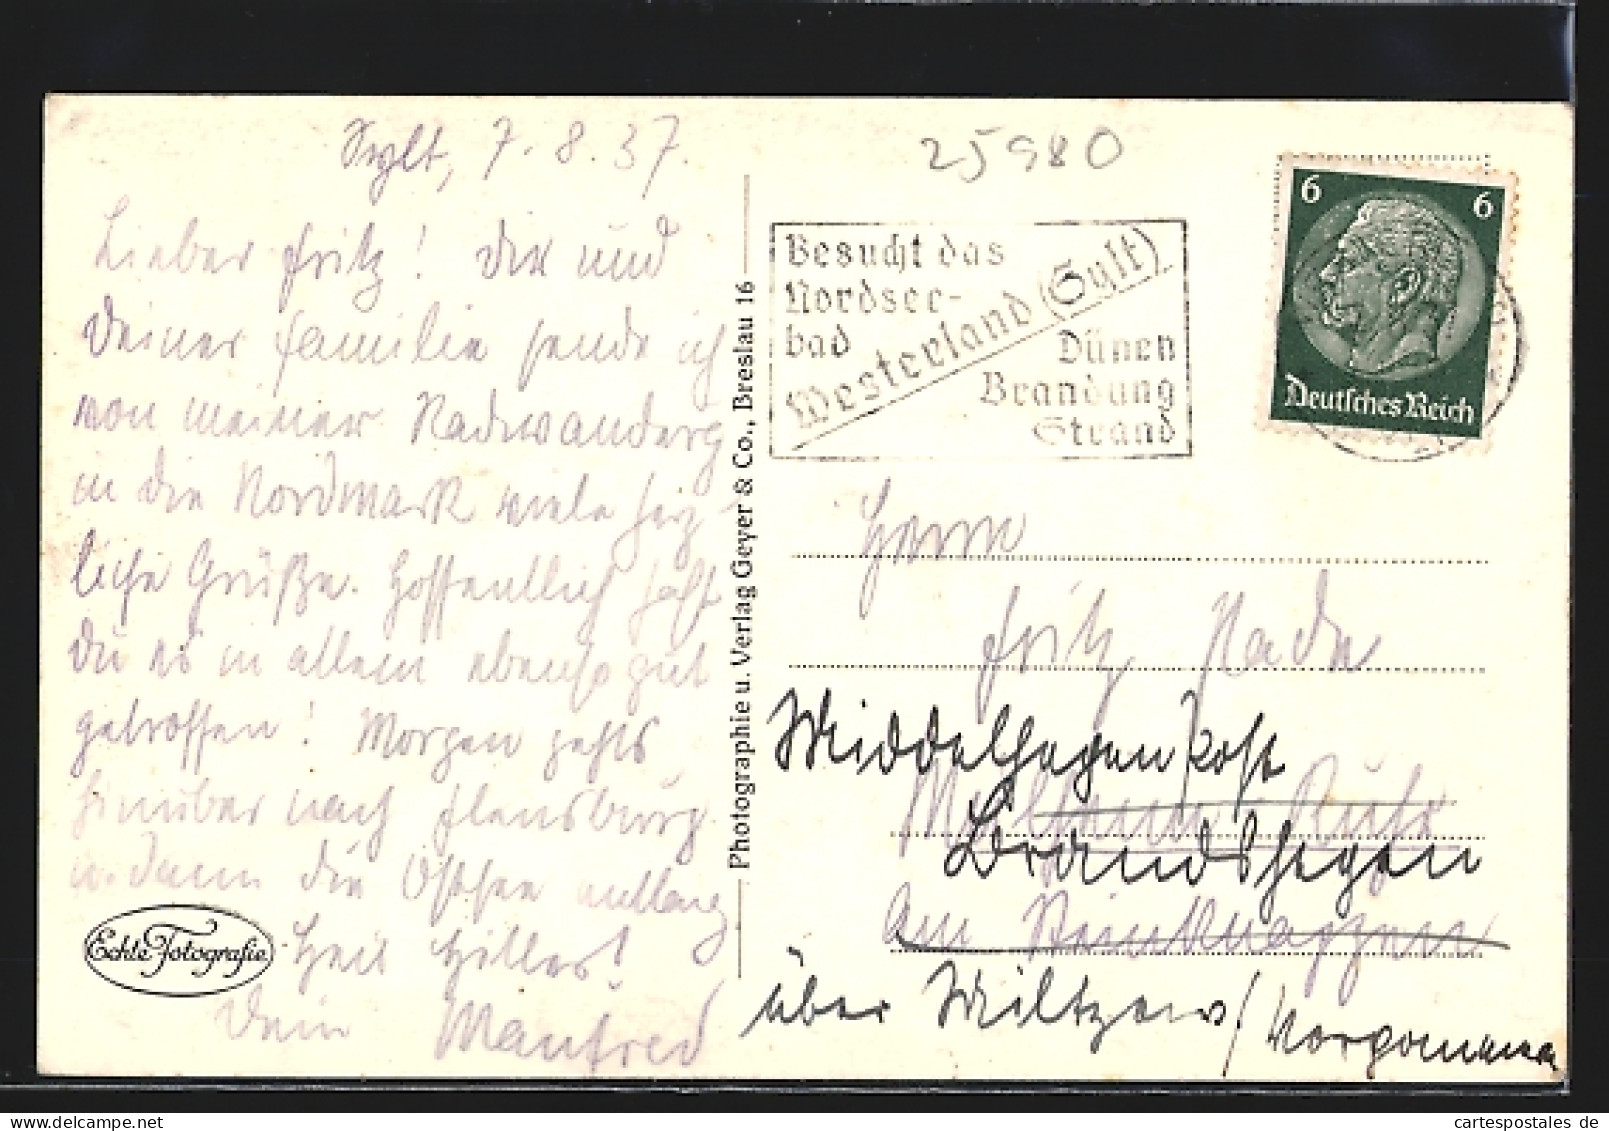 Sylt, 7.8.37.
Lieber Fritz! Dir und
Deiner Familie sende ich
von meiner Radwanderg
in die Nordmark viele herz-
liche Grüße. Hoffentlich habt
Ihr es in allem ebenso gut
getroffen! Morgen gehts
hinüber nach Flensburg
u. dann die Ostsee entlang
Heil Hitler!
Dein Manfred
Echte Fotografie
Photographie u. Verlag Geyer & Co., Breslau 16
25980
Besucht das
Nordsee-
bad
Westerland (Sylt)
Dünen
Brandung
Strand
6 6
Deutsches Reich
Herrn
Fritz Rade
Middelhagen Post
Ruhr
Brandshagen
Am
über Miltzow / Vorpommern
cartespostales de